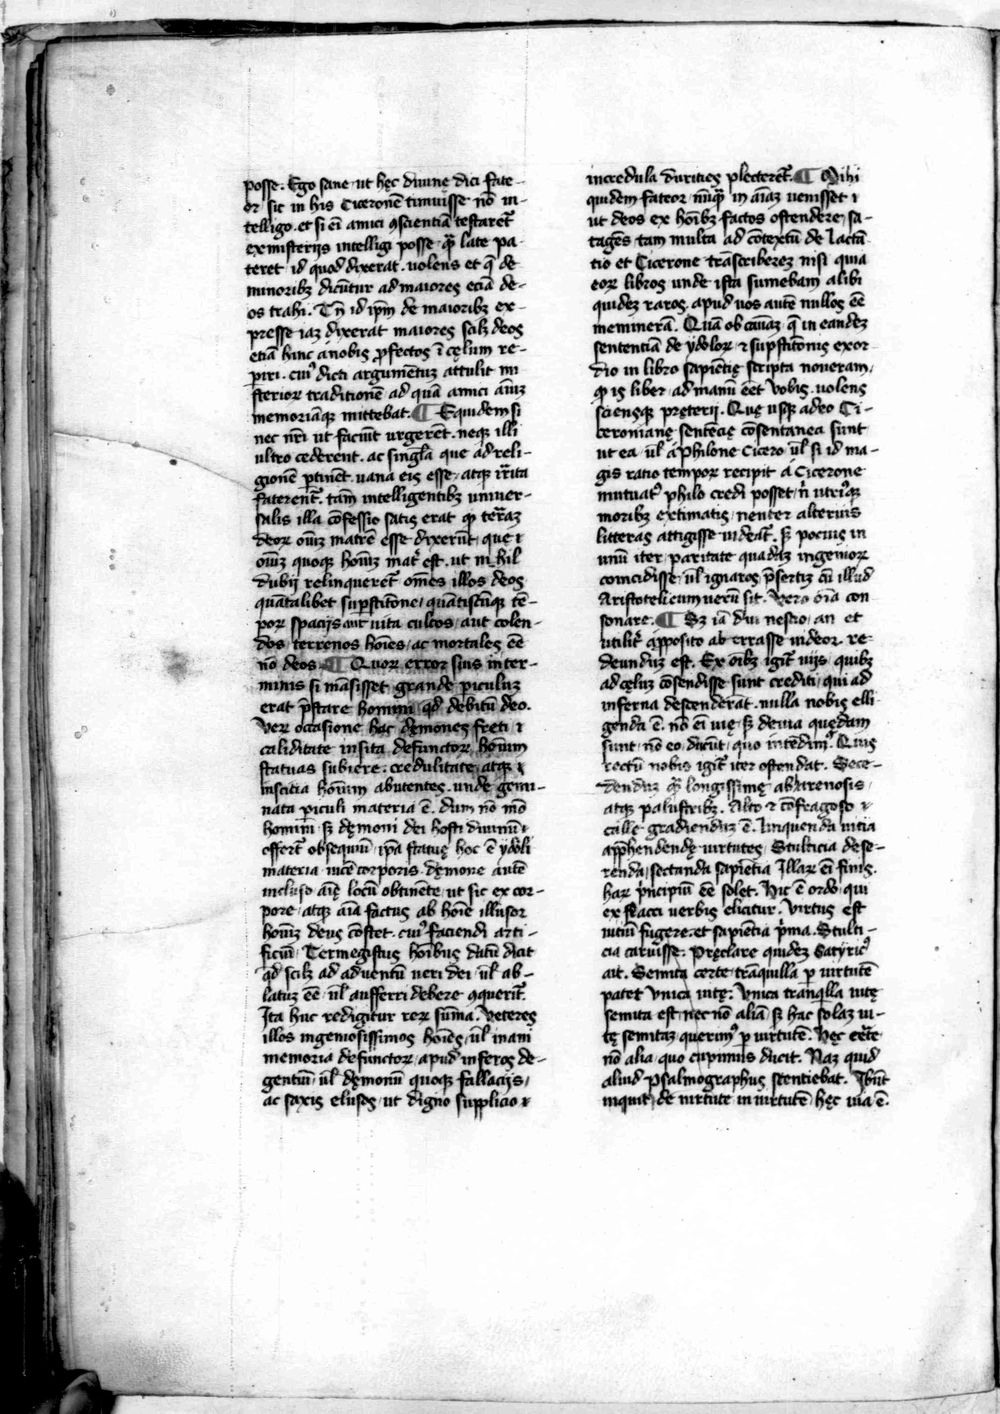 posse. Ego sane ut hęc diuine dici fate-
or sic in his Ciceronē timuisse nō in-
telligo. et si eī amici ꝯscientiā testaret᷑
ex misterijs intelligi posse ꝙ̄ late pa-
teret id quod dixerat. uolens et q̄ de
minoribꝫ dicūtur ad maiores eciā de-
os trahi. Tn̄ id ip̄m de maioribꝫ ex-
presse iaꝫ dixerat maiores scilꝫ deos
etiā hinc a nobis ꝓfectos ī cęlum re-
periri. cuiꝰ dicti argumētuꝫ attulit mi
sterioꝝ traditionē ad quā amici aīuꝫ
memoriāqꝫ mittebat. ¶ Equidem si
nec nr̄i ut faciūt urgerēt. neqꝫ illi
ultro cederent. ac singl̄a que ad reli-
gionē ꝑtinēt. uana eis esse, atqꝫ irrita
faterent᷑. tam̄ intelligentibꝫ uniuer-
salis illa cōfessio satis erat ꝙ terraꝫ
deoꝝ oīuꝫ matrē esse dixerūt, que ⁊
oīuꝫ quoqꝫ hoīuꝫ mat᷑ est. ut nihil
dubij relinqueret᷑ om̄es illos deos
quātalibet suꝑstitōne, quātiscūqꝫ tē-
poꝝ spacijs aut uita cultos, aut colen-
dos, terrenos hoīes, ac mortales eē
nō deos. ¶ Quoꝝ error suis in ter-
minis si māsisset grande ꝑiculuꝫ
erat p̄stare homini, qd̓ debitū deo.
Veꝝ occasione hac dęmones freti, ⁊
caliditate insita defunctoꝝ hoīum
statuas subiere: credulitate, atqꝫ
inscitia hoīum abutentes. unde gemi-
nata ꝑiculi materia ē. dum nō mō
homini sꝫ dęmoni dei hosti diuinū
offert᷑ obsequiū. ip̄a statuę hoc ē ydoli
materia uicē corporis. dęmone autē
incluso aīę locū obtinēte, ut sic ex cor-
pore, atqꝫ aīa factus ab hoīe illusor
hoīuꝫ deus cōstet. cuiꝰ faciendi arti-
ficiū, Termegistus hoībus datū dicit
qd̓ scilꝫ ad aduentū ueri dei ul̄ ab-
latuꝫ eē ul̄ aufferri debere ꝯquerit᷑.
Ita huc redigitur reꝝ sūma. Veteres
illos ingeniosissimos hoīes, ul̄ inani
memoria defunctoꝝ, apud inferos de-
gentiū ul̄ dęmonū quoqꝫ fallacijs,
ac saxis elusos, ut digno supplicio
incredula durities plecteret᷑. ¶ Mihi
quidem fateor nūqꝫ̄ in aīaꝫ uenisset
ut deos ex hoībꝫ factos ostendere sa-
tagēs, tam multa ad cōtextū de Lactā
tio et Cicerone trāscribereꝫ nisi quia
eoꝝ libros unde ista sumebam alibi
quideꝫ raros, apud uos autē nullos eē
meminerā. Quā ob cauaꝫ q̄ in eandeꝫ
sententiā de ydoloꝝ ⁊ sup̄stitōnis exor
dio in libro sapiētię scripta noueram,
ꝙ is liber, ad manū eēt Vobis, uolens
sciensqꝫ pręterij. Quę usqꝫ adeo Ci-
ceronianę sentētię cōsentanea sunt
ut ea, ul̄ á Philone Cicero ul̄ si id ma-
gis ratio tempoꝝ recipit á Cicerone
mutuatꝰ philo credi posset, n̄ utriꝰqꝫ
moribꝫ extimatis, neuter alterius
litteras attigisse uideat᷑. sꝫ pocius in
unū iter, paritate quadaꝫ ingenioꝝ
coincidisse, ul̄ ignaros p̄sertiꝫ cū illud
Aristotelicum uerū sit. Vero oīa con
sonare. ¶ Sꝫ iā dui nescio, an et
utilit᷑ apposito ab errasse uideor. re-
deunduꝫ est. Ex oībꝫ igit᷑ uijs, quibꝫ
ad cęluꝫ cōsendisse sunt crediti, qui ad
inferna descenderāt. nulla nobis elli
genda ē. nō eī uię, sꝫ deuia quędam
sunt, nō eo ducūt, quo intēdimꝰ. Quis
rectū nobis igit᷑ iter ostendat. Sece-
denduꝫ ꝙ̄ longissime ab arenosis,
atqꝫ palustribꝫ. Alto ⁊ cōfragoso
calle gradienduꝫ ē. linquenda uitia
app̄hendendę uirtutes, Stulticia dese-
renda, sectanda sapiētia Illaꝝ eī finis.
haꝝ p̄ncipiū eē solet. Hic ē ordo, qui
ex Flacci uerbis elicitur. Virtus est
uitiū fugere. et sapiētia p̄ma. Stulti-
cia caruisse. Pręclare quideꝫ Satyricꝰ
ait. Semita certe trāquilla ꝑ uirtutē
patet Vnica uitę: Vnica tranq̓lla uitę
semita est, nec nō aliā sꝫ hac solaꝫ ui-
tę semitaꝫ querimꝰ ꝑ uirtutē. Hęc certe
nō alia, quo cupimus ducit. Naꝫ quid
aliud Psalmographus sentiebat. Ibūt
inquit, de uirtute in uirtutē, hęc uia ē.